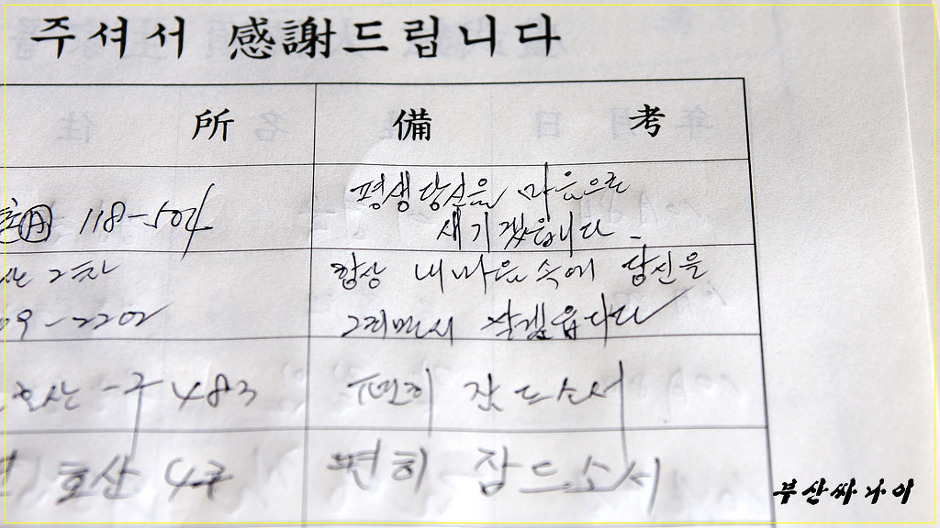 주셔서 感謝드립니다
所 備 考
118-504 평생 당신을 마음으로
새기겠읍니다
2차 항상 내 마음 속에 당신을
09-2202 그리면서 살겠읍니다
구 483 편히 잠드소서
호산 4구 편히 잠드소서
부산싸나이